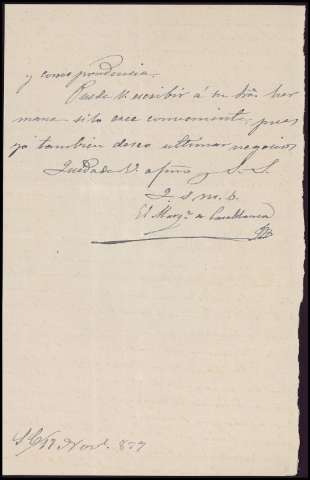 y correspondencia.
Puede V. escribir á su Sra. her
mana si lo cree conveniente, pues
yo tambien deseo ultimar negocios
Queda de V. afmo y S. S.
Q. S. M. B.
El Marq.s de Casablanca
S/C 17 Nov. 877